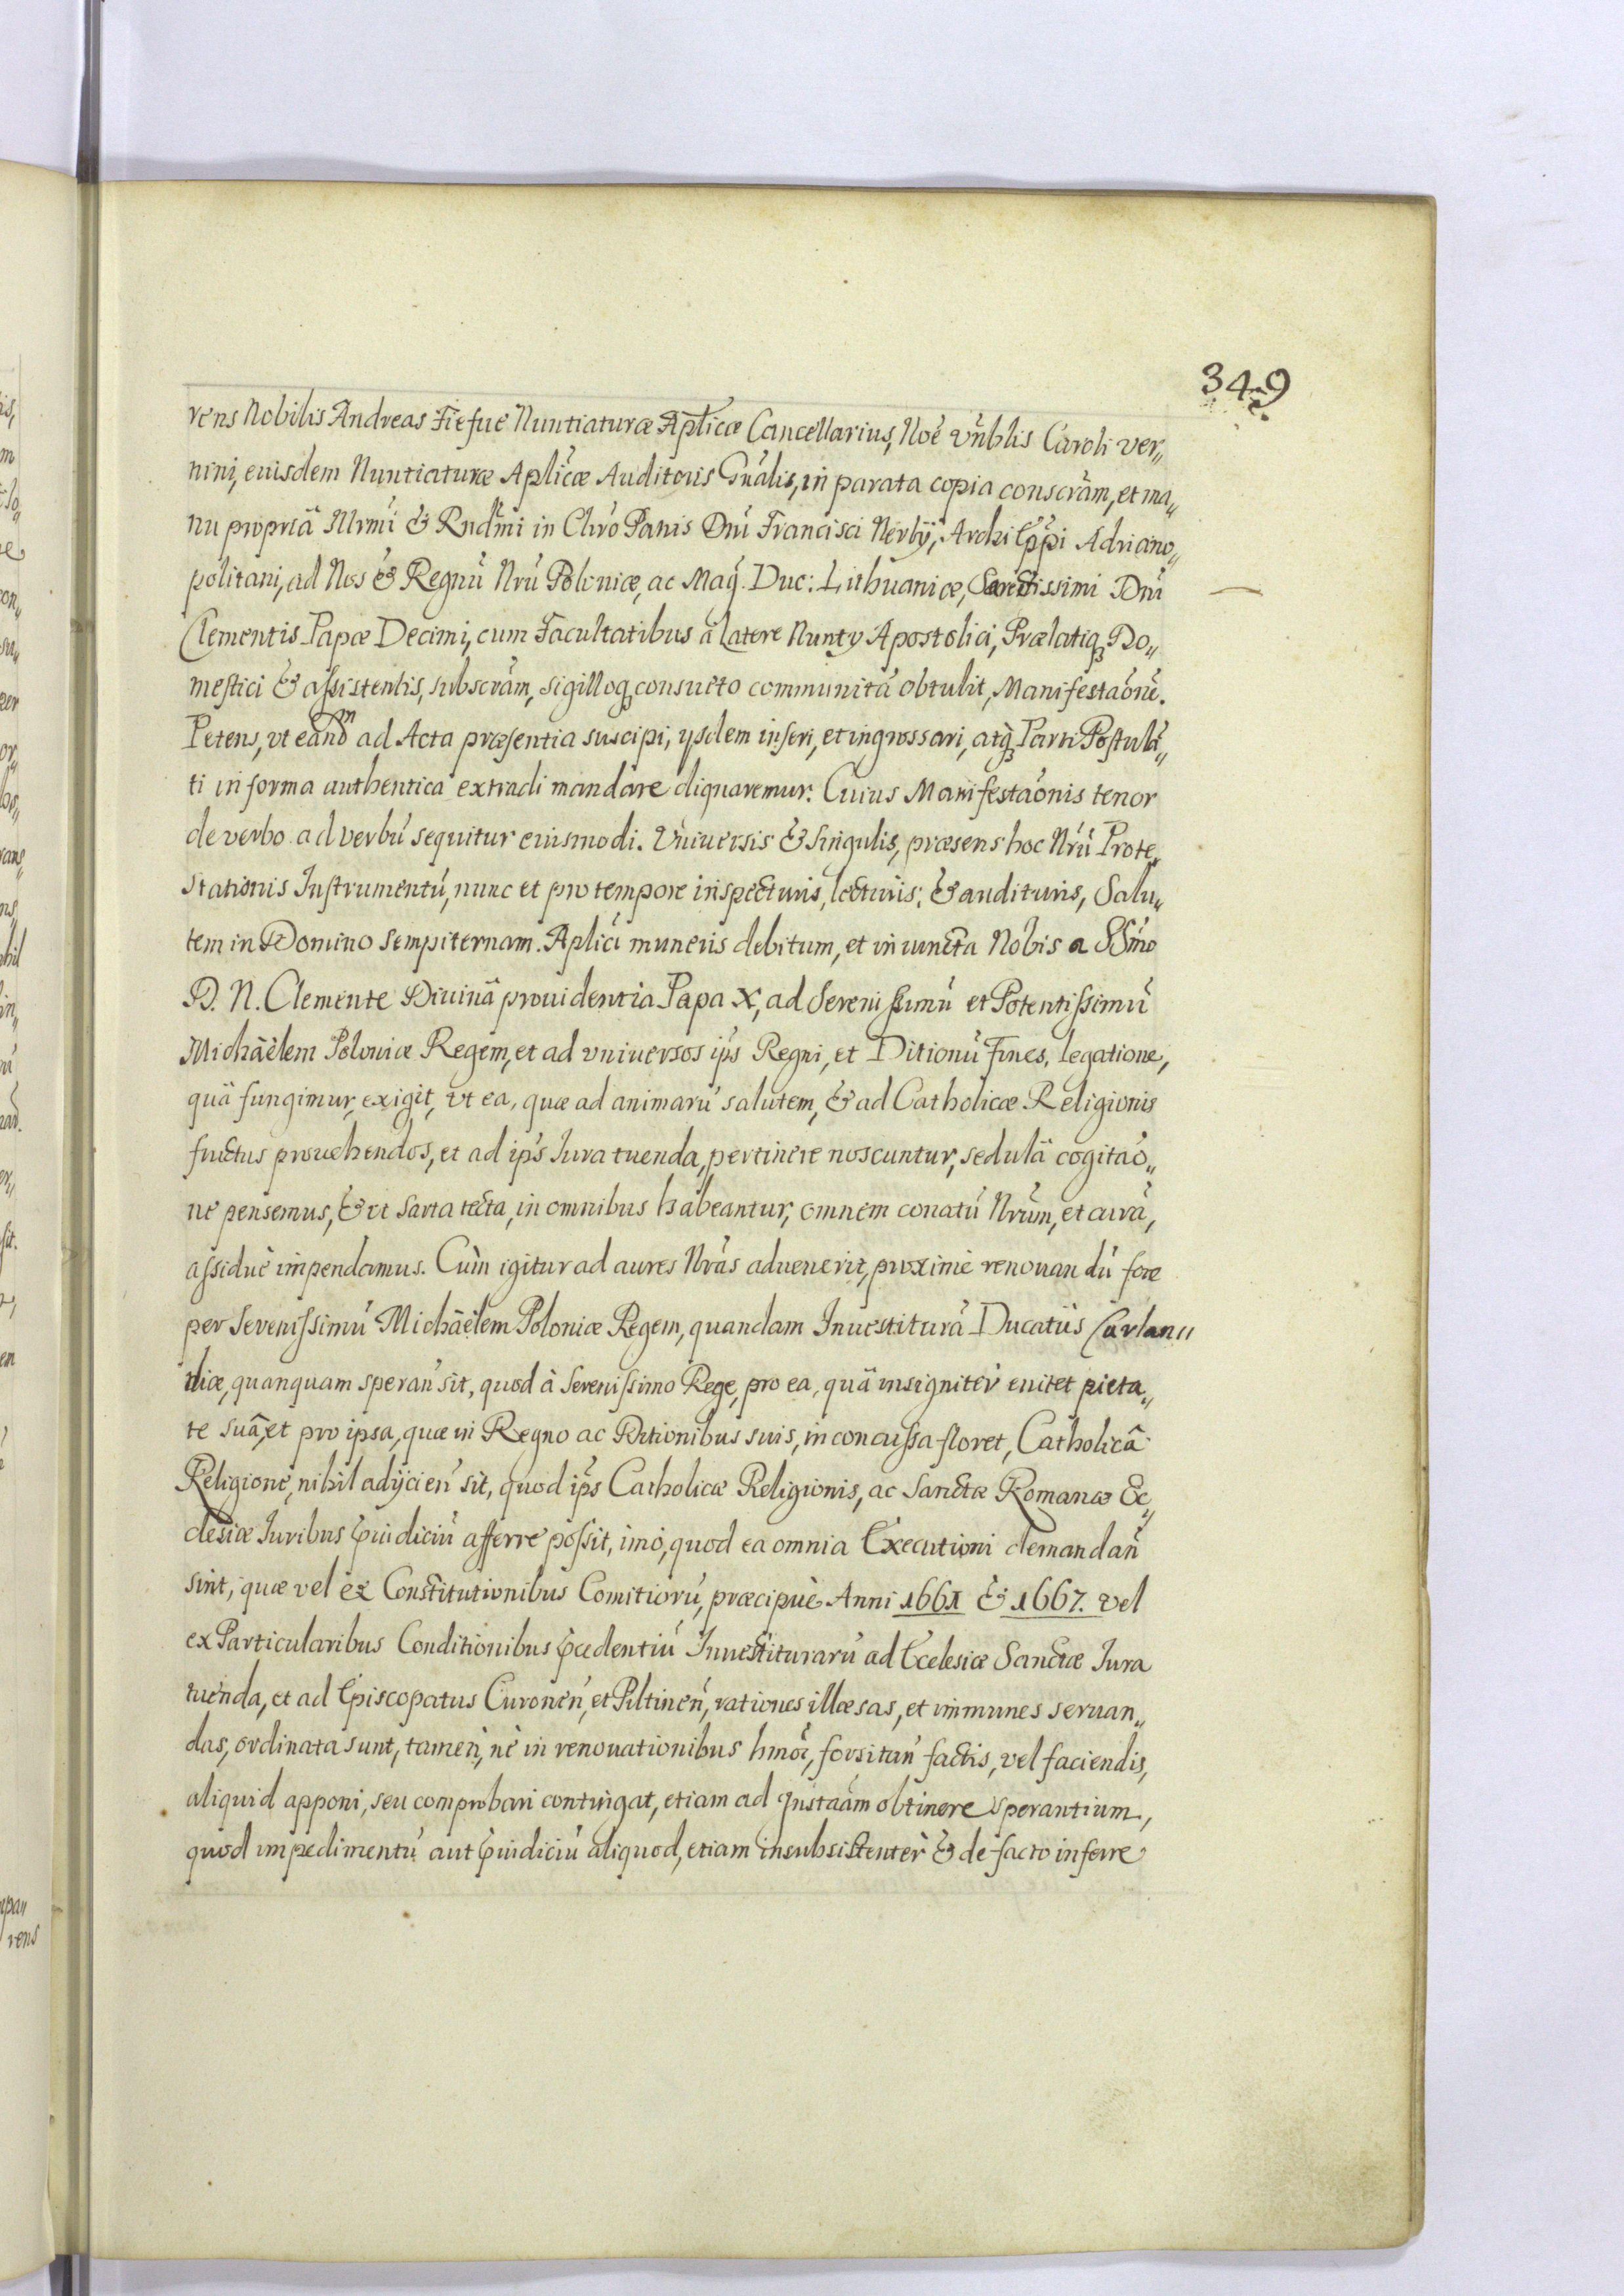 349
rens Nobilis Andreas Fiefue Nuntiaturæ Aplicæ Cancellarius, Noe vnblis Caroli ver„
nini, euisdem Nuntiaturæ Aplicæ Auditoris Gnalis, in parata copia conscram, et ma„
nu propriâ Illrmi & Rndmi in Chro Patris Dni Francisci Nerly, ArchiEppi Adriano„
politani, ad Nos & Regnu Nru Poloniæ, ac Mag. Duc: Lithuaniæ, Sanctissimi Dni
Clementis Papæ Decimi, cum Facultatibus a latere Nuntij Apostolici, Prælatiq Do„
mestici & assistentis, subscram, sigilloq consueto communita obtulit, Manifestaone.
Petens, vt eandm ad Acta præsentia suscipi, ysdem inseri, et ingrossari, atq Parti Postula„
ti in forma authentica extradi mandare dignaremur. Cuius Manifestaonis tenor
de verbo ad verbu sequitur euismodi. Vniuersis & singulis, præsens hoc Nru Prote„
stationis Instrumentu, nunc et pro tempore inspecturis, lecturis, & audituris, Salu„
tem in Domino sempiternam. Aplici muneris debitum, et iniuncta Nobis a SSmo
D. N. Clemente Diuinâ prouidentia Papa X, ad Serenissimu et Potentissimu
Michäelem Poloniæ Regem, et ad vniuersos ips Regni, et Ditionu Fines, legatione,
quâ fungimur, exigit, vt ea, quæ ad animaru salutem, & ad Catholicæ Religionis
fructus prouehendos, et ad ips Iura tuenda, pertinere noscuntur, sedulâ cogitao„
ne pensemus, & vt sarta tecta, in omnibus habeantur, omnem conatu Nrum, et cura,
assiduè impendamus. Cùm igitur ad aures Nras aduenerit, proximè renouandu fore
per Serenissimu Michäelem Poloniæ Regem, quandam Inuestitura Ducatûs Curlan„
diæ, quanquam speran sit, quod à Serenissimo Rege, pro ea, quâ insigniter enitet pieta„
te suâ, et pro ipsa, quæ in Regno ac Ditionibus suis, inconcussa floret, Catholicâ
Religione, nihil adijcien sit, quod ips Catholicæ Religionis, ac Sanctæ Romanæ Ec„
clesiæ Iuribus piudiciu afferre possit, imò, quod ea omnia Executioni demandan
sint, quæ vel ex Constitutionibus Comitioru, præcipuè Anni 1661 & 1667. vel
ex Particularibus Conditionibus pcedentiu Inuestituraru ad Ecclesiæ Sanctæ Iura
tuenda, et ad Episcopatus Curonen, et Piltinen, rationes illæsas, et immunes seruan„
das, ordinata sunt, tamen, nè in renouationibus hmoi, forsitan factis, vel faciendis,
aliquid apponi, seu comprobari contingat, etiam ad Instaam obtinere sperantium,
quod impedimentu aut piudiciu aliquod, etiam insubsistenter & de facto inferre